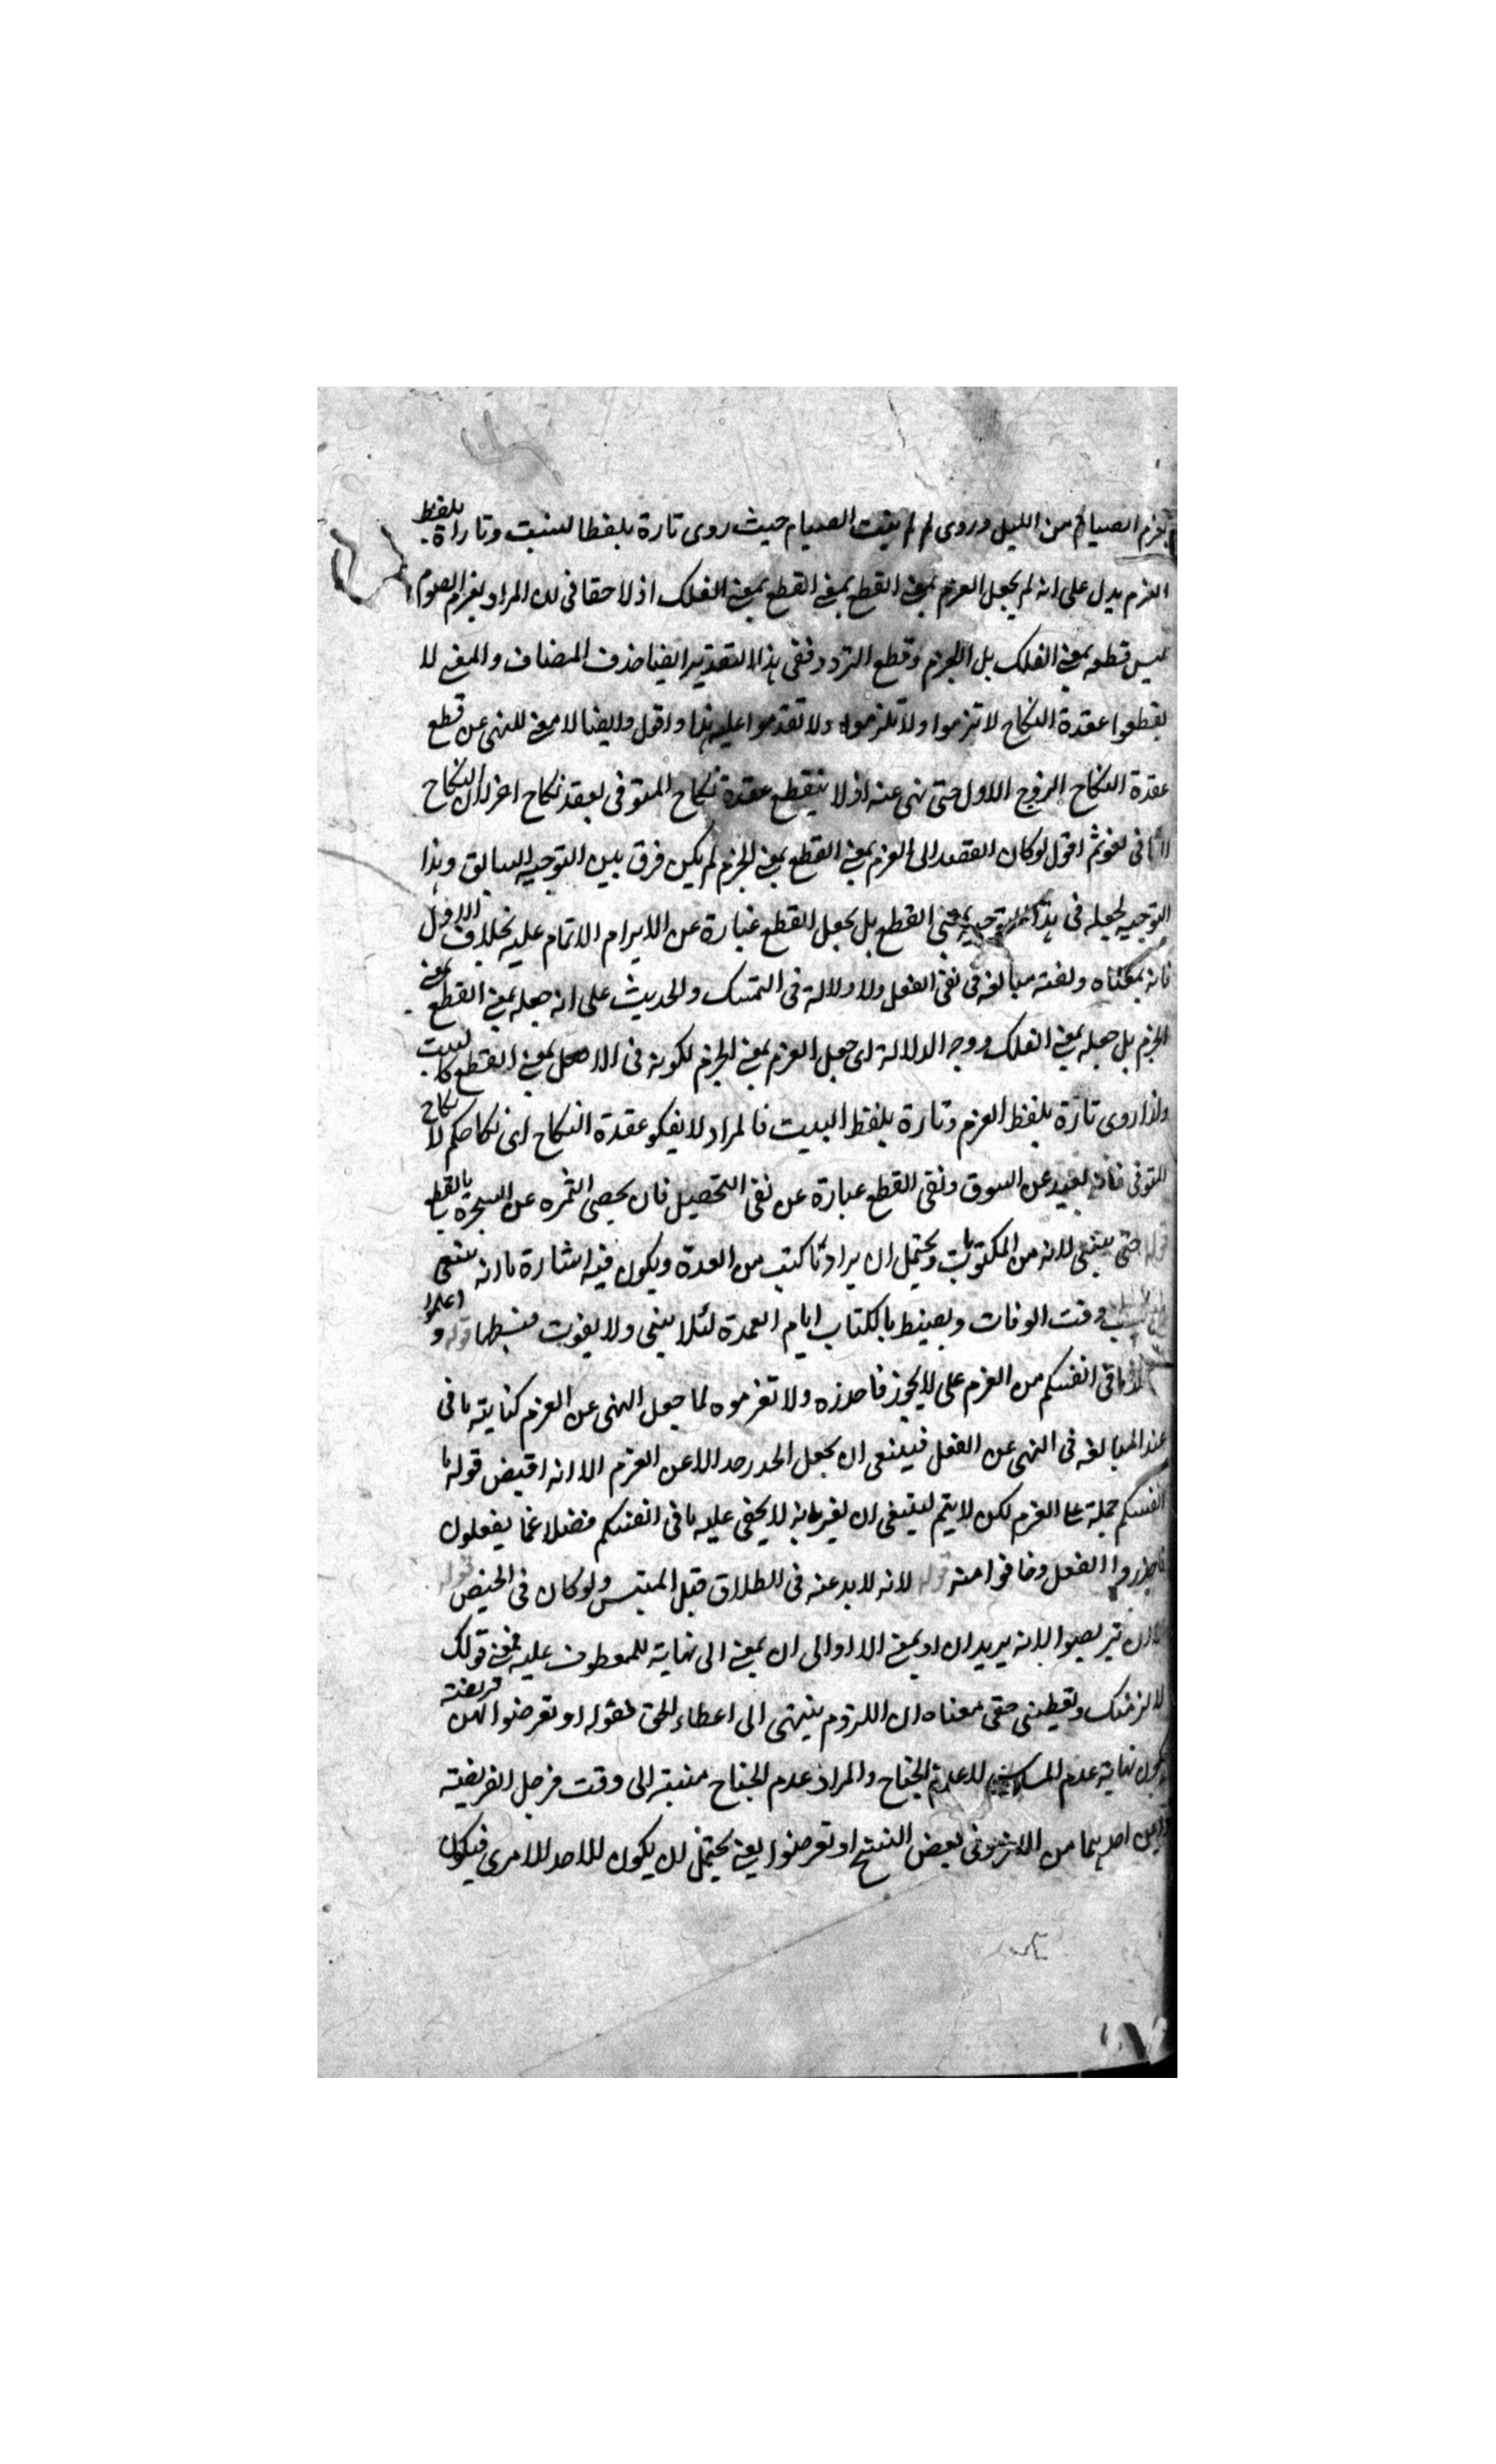 يعزم الصيام من الليل وروى لم لم يبت الصيام حيث روى تارة بلفظا لسنبت وتاراة بلفظ
العزم يدل على انه لم يجعل العزم بمعنى القطع بمعنى القطع بمعنى الفلك اذ لا خفا فى ان المراد بعزم الصوم
ليس قطعه بمعنى الفلك بل الجزم وقطع التردد ففى هذا التقدير ايضا حذف المضاف والمعنى لا
يقطعوا عقدة النكاح لا تزموا ولا تلزموه ولا تقدموا عليه هذا واقول وايضا لا معنى للنهى عن قطع
عقدة النكاح الزوج الاول حتى نهى عنه اذ لا ينقطع عقدة نكاح المتوفى بعقد نكاح اخر لان النكاح
الثانى لغو ثم اقول لو كان القصد الى العزم بمعنى القطع بمعنى الجزم لم يكن فرق بين التوجيه السابق وهذا
التوجيه لجعله فى هذا التوجيه بمعنى القطع بل يجعل القطع عبارة عن الابرام الاتمام عليه بخلاف الاول
فانه بمعناه ولفته مبالغه فى نفى الفعل ولا دلالة فى التمسك والحديث على انه جعله بمعنى القطع بمعنى
الجزم بل جعله بمعنى الفلك ووجه الدلالة اى جعل العزم بمعنى الجزم لكونه فى الاصل بمعنى القطع كالبيت
ولذا روى تارة بلفظ العزم وتارة بلفظ البيت فالمراد لا يفكو عقدة النكاح اى نكاحكم لا نكاح
المتوفى فانه بعيد عن السوق ونفى القطع عبارة عن نفى التحصيل فان يحصى الثمره عن السجرة بالقطع
قوله حتى ينتهى لانه من المكتوبات ويحتمل ان يراد ما كتب من العدة ويكون فيه اشارة بانه ينبغى
وقت الوفات وبضبط بالكتاب ايام العمدة لئلا ينسى ولا يفوت ضبطها قوله واعلموا
ما فى انفسكم من العزم على لا يجوز فاحذره ولا تعزموه لما جعل النهى عن العزم كناية ما فى
عند المبالغه فى النهى عن الفعل فينبغى ان يجعل الحذر حدا لا عن العزم الا انه اقيض قوله ما
انفسكم جملة على العزم لكن لا يتم لينبغى ان يفير بانه لا يخفى عليه ما فى انفسكم فضلا عما يفعلون
فاحذروا الفعل وخافوا منه قوله لانه لا بدعنه فى الطلاق قبل المبتس ولو كان فى الحيض قوله
الا ان تربصوا لانه يريد ان او بمعنى الا او الى ان بمعنى الى نهاية للمعطوف عليه فمعنى قولك
لا لزمنك وتعطينى حقى معناه ان اللزوم ينتهى الى اعطاء للحق فقوله او تعرضوا لهن فريضة
يكون نهاية عدم المساس لا عدم الجناح والمراد عدم الجناح منبته الى وقت فرجل الفريضة
احدهما من الاخر وفى بعض النسخ او تعرضوا يعنى يحتمل ان يكون للاحد الامرى فيكون